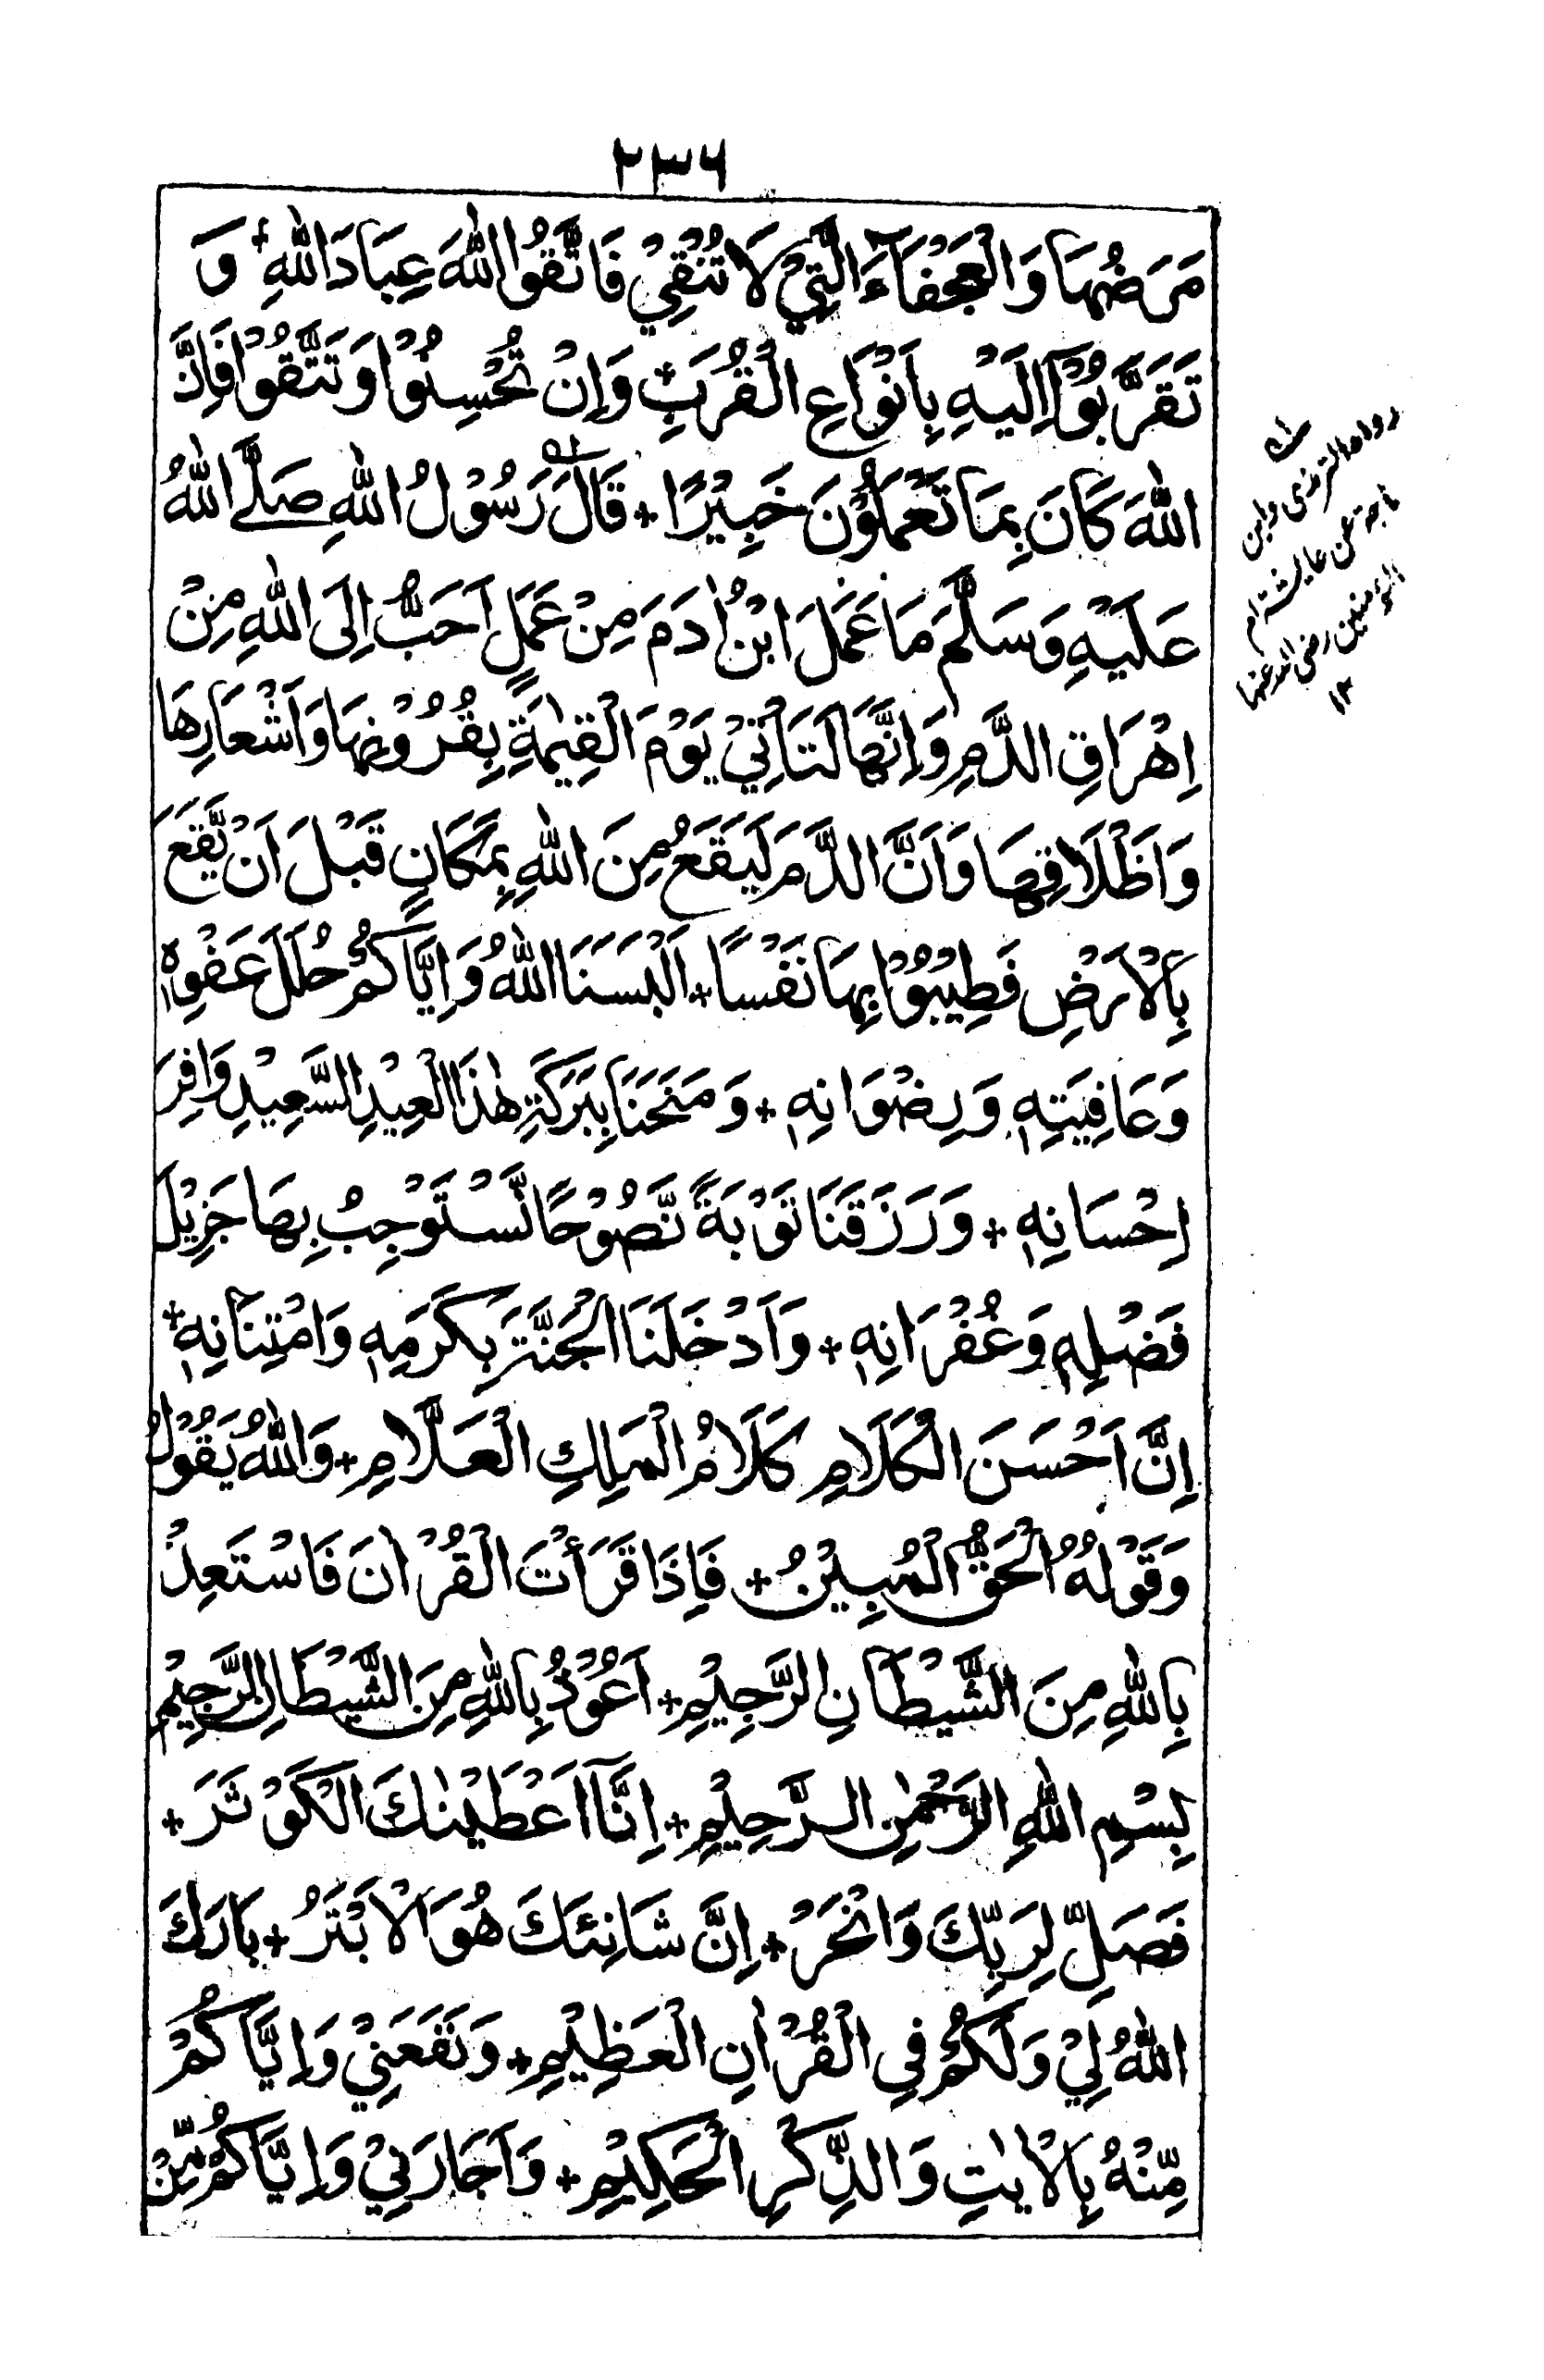 ٢٣٦
مَرَضُهَا وَالْعَجْفَآءَ الَّتِيْ لَا تُنْقِيْ فَاتَّقُوا اللّٰهَ عِبَادَ اللّٰهِ + وَ
تَقَرَّبُوْآ اِلَيْهِ بِاَنْوَاعِ الْقُرَبِ + وَاِنْ تُحْسِنُوْا وَتَتَّقُوْا فَاِنَّ
اللّٰهَ كَانَ بِمَا تَعْمَلُوْنَ خَبِيْرًا + قَالَ رَسُوْلُ اللّٰهِ صَلَّے اللّٰهُ
عَلَيْهِ وَسَلَّمَ مَا عَمَلَ ابْنُ اٰدَمَ مِنْ عَمَلٍ اَحَبُّ اِلَى اللّٰهِ مِنْ
اِهْرَاقِ الدَّمِ وَاِنَّهَا لَتَاْتِيْ يَوْمَ الْقِيٰمَةِ بِقُرُوْنِهَا وَاَشْعَارِهَا
وَاَظْلَافِهَا وَاَنَّ الدَّمَ لَيَقَعُ مِنَ اللّٰهِ بِمَكَانٍ قَبْلَ اَنْ يَّقَعَ
بِالْاَرْضِ فَطِيْبُوْا بِهَا نَفْسًا + اَلْبَسَنَا اللّٰهُ وَاِيَّاكُمْ حُلَلَ عَفْوِهٖ
وَعَافِيَتِهٖ وَرِضْوَانِهٖ + وَمَنَحَنَا بِبَرَكَةِ هٰذَا الْعِيْدِ السَّعِيْدِ وَافِرَ
اِحْسَانِهٖ + وَرَزَقَنَا تَوْبَةً نَّصُوْحًا نَّسْتَوْجِبُ بِهَا جَزِيْلَ
فَضْلِهٖ وَغُفْرَانِهٖ + وَاَدْخَلَنَا الْجَنَّةَ بِكَرَمِهٖ وَامْتِنَانِهٖ +
اِنَّ اَحْسَنَ الْكَلَامِ كَلَامُ الْمَلِكِ الْعَلَّامِ + وَاللّٰهُ يَقُوْلُ
وَقَوْلُهُ الْحَقُّ الْمُبِيْنُ + فَاِذَا قَرَأْتَ الْقُرْاٰنَ فَاسْتَعِذْ
بِاللّٰهِ مِنَ الشَّيْطَانِ الرَّجِيْمِ + اَعُوْذُ بِاللّٰهِ مِنَ الشَّيْطَانِ الرَّجِيْمِ
بِسْمِ اللّٰهِ الرَّحْمٰنِ الرَّحِيْمِ + اِنَّآ اَعْطَيْنٰكَ الْكَوْثَرَ +
فَصَلِّ لِرَبِّكَ وَانْحَرْ + اِنَّ شَانِئَكَ هُوَ الْاَبْتَرُ + بَارَكَ
اللّٰهُ لِيْ وَلَكُمْ فِي الْقُرْاٰنِ الْعَظِيْمِ + وَنَفَعَنِيْ وَاِيَّاكُمْ
مِّنْهُ بِالْاٰيٰتِ وَالذِّكْرِ الْحَكِيْمِ + وَاَجَارَنِيْ وَاِيَّاكُمْ مِّنْ
رواه الترمذى وابن
ماجة عن عايشة ام
المؤمنين رضى الله عنها
١٢